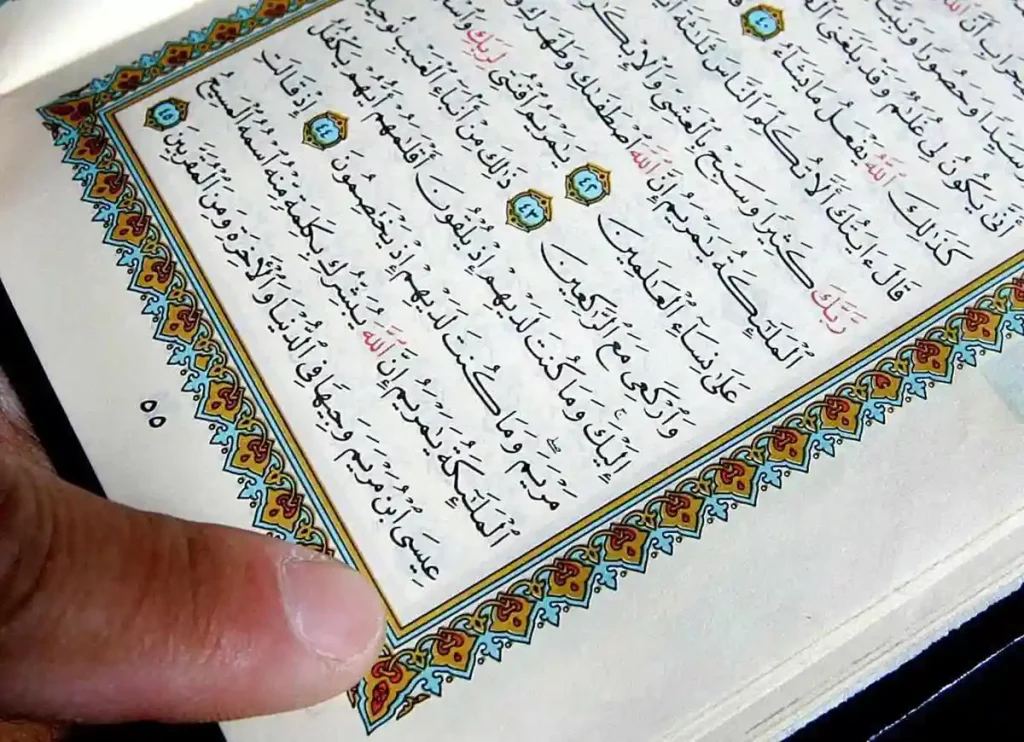 أَنَّ ٱللَّهَ
وَسَيِّدًا وَحَصُورًا وَنَبِيًّا
أَنَّىٰ يَكُونُ لِى غُلَٰمٌ وَقَدْ بَلَغَنِىَ
كَذَٰلِكَ ٱللَّهُ يَفْعَلُ مَا يَشَآءُ ٤٠
قَالَ ءَايَتُكَ أَلَّا تُكَلِّمَ ٱلنَّاسَ ثَلَٰثَةَ
رَّبَّكَ كَثِيرًا وَسَبِّحْ بِٱلْعَشِىِّ وَٱلْإِبْكَٰرِ
ٱلْمَلَٰٓئِكَةُ يَٰمَرْيَمُ إِنَّ ٱللَّهَ ٱصْطَفَىٰكِ وَطَهَّرَكِ
عَلَىٰ نِسَآءِ ٱلْعَٰلَمِينَ ٤٢ يَٰمَرْيَمُ ٱقْنُتِى لِرَبِّكِ
وَٱرْكَعِى مَعَ ٱلرَّٰكِعِينَ ٤٣ ذَٰلِكَ مِنْ أَنۢبَآءِ ٱلْغَيْبِ نُوحِيهِ
إِلَيْكَ وَمَا كُنتَ لَدَيْهِمْ إِذْ يُلْقُونَ أَقْلَٰمَهُمْ أَيُّهُمْ يَكْفُلُ
مَرْيَمَ وَمَا كُنتَ لَدَيْهِمْ إِذْ يَخْتَصِمُونَ ٤٤ إِذْ قَالَتِ
ٱلْمَلَٰٓئِكَةُ يَٰمَرْيَمُ إِنَّ ٱللَّهَ يُبَشِّرُكِ بِكَلِمَةٍ مِّنْهُ ٱسْمُهُ ٱلْمَسِيحُ
عِيسَى ٱبْنُ مَرْيَمَ وَجِيهًا فِى ٱلدُّنْيَا وَٱلْءَاخِرَةِ وَمِنَ ٱلْمُقَرَّبِينَ ٤٥
٥٥